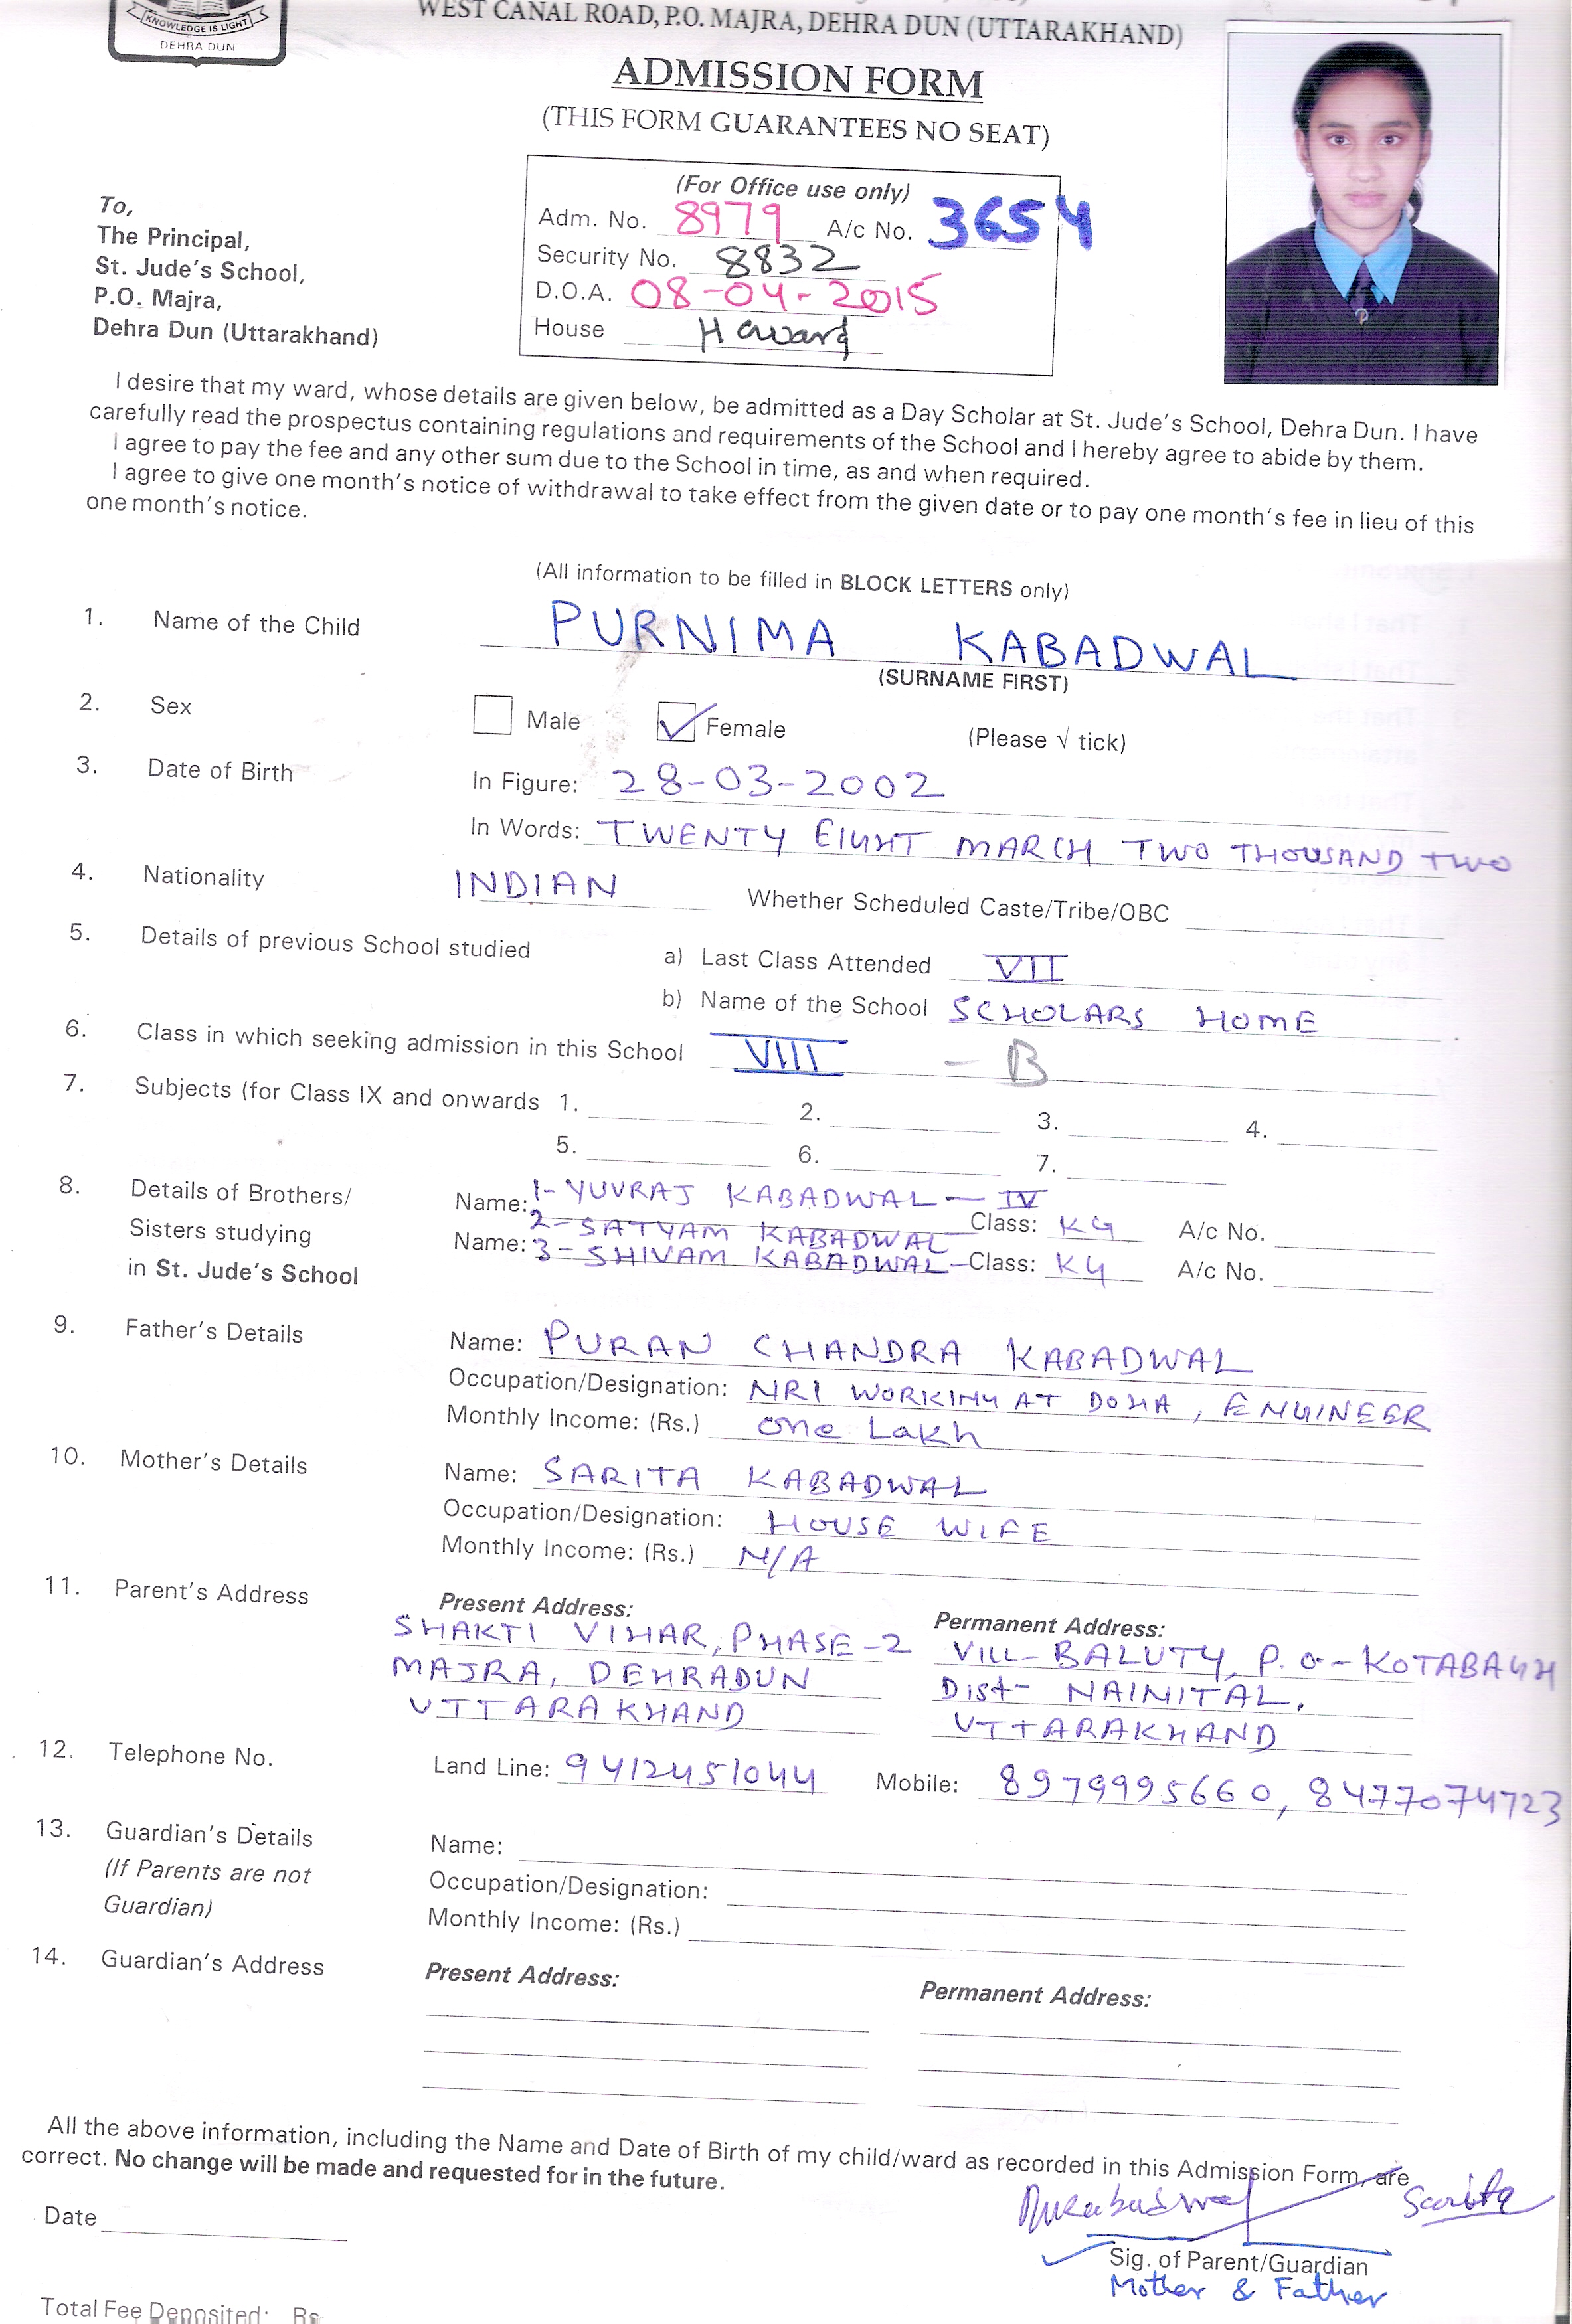 KNOWLEDGE IS LIGHT
DEHRA DUN
WEST CANAL ROAD, P.O. MAJRA, DEHRA DUN (UTTARAKHAND)
ADMISSION FORM
(THIS FORM GUARANTEES NO SEAT)
(For Office use only)
Adm. No. 8979 A/c No. 3654
Security No. 8832
D.O.A. 08-04-2015
House Howard
To,
The Principal,
St. Jude's School,
P.O. Majra,
Dehra Dun (Uttarakhand)
I desire that my ward, whose details are given below, be admitted as a Day Scholar at St. Jude's School, Dehra Dun. I have
carefully read the prospectus containing regulations and requirements of the School and I hereby agree to abide by them.
I agree to pay the fee and any other sum due to the School in time, as and when required.
I agree to give one month's notice of withdrawal to take effect from the given date or to pay one month's fee in lieu of this
one month's notice.
(All information to be filled in BLOCK LETTERS only)
1. Name of the Child PURNIMA KABADWAL
(SURNAME FIRST)
2. Sex Male Female (Please √ tick)
3. Date of Birth In Figure: 28-03-2002
In Words: TWENTY EIGHT MARCH TWO THOUSAND TWO
4. Nationality INDIAN Whether Scheduled Caste/Tribe/OBC
5. Details of previous School studied a) Last Class Attended VII
b) Name of the School SCHOLARS HOME
6. Class in which seeking admission in this School VIII - B
7. Subjects (for Class IX and onwards 1. 2. 3. 4.
5. 6. 7.
8. Details of Brothers/ Name: 1- YUVRAJ KABADWAL - IV
Sisters studying 2- SATYAM KABADWAL Class: KG A/c No.
in St. Jude's School Name: 3- SHIVAM KABADWAL - Class: KG A/c No.
9. Father's Details Name: PURAN CHANDRA KABADWAL
Occupation/Designation: NRI WORKING AT DOHA, ENGINEER
Monthly Income: (Rs.) One Lakh
10. Mother's Details Name: SARITA KABADWAL
Occupation/Designation: HOUSE WIFE
Monthly Income: (Rs.) N/A
11. Parent's Address Present Address: Permanent Address:
SHAKTI VIHAR, PHASE-2 VILL- BALUTY, P.O- KOTABAGH
MAJRA, DEHRADUN Dist- NAINITAL.
UTTARAKHAND UTTARAKHAND
12. Telephone No. Land Line: 9412451044 Mobile: 8979995660, 8477074723
13. Guardian's Details Name:
(If Parents are not Occupation/Designation:
Guardian) Monthly Income: (Rs.)
14. Guardian's Address Present Address: Permanent Address:
All the above information, including the Name and Date of Birth of my child/ward as recorded in this Admission Form, are
correct. No change will be made and requested for in the future.
Sarita
Date
Sig. of Parent/Guardian
Mother & Father
Total Fee Deposited: Rs